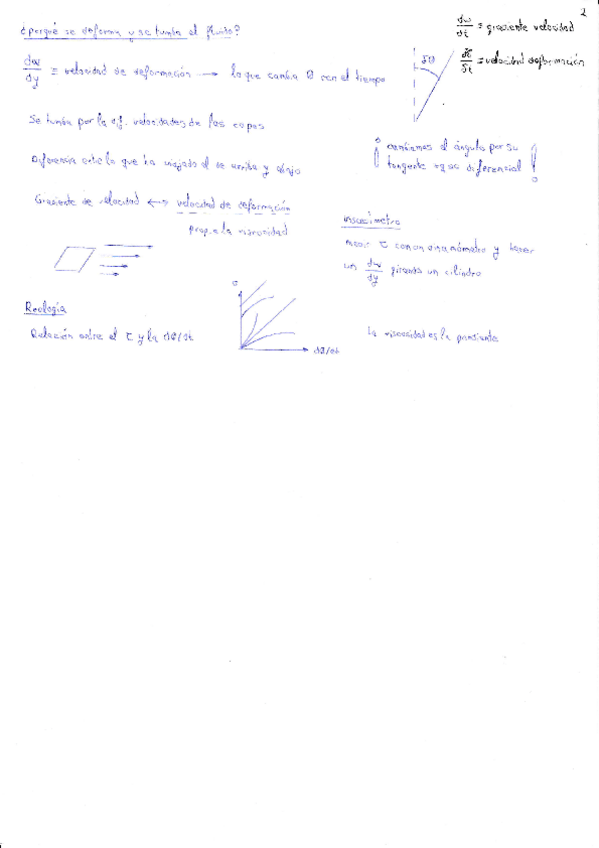 2
¿porqué se deforma y se tumba el fluido?
dw/dt ≡ gradiente velocidad
δθ
δt ≡ velocidad deformación
dw/dy ≡ velocidad de deformación → lo que cambia θ con el tiempo
Se tumba por la dif. velocidades de las capas
cambiamos el ángulo por su
tangente diferencial
Diferencia entre lo que ha viajado el de arriba y abajo
Gradiente de velocidad ↔ velocidad de deformación
prop. a la viscosidad
viscosímetro
medir τ con un dinamómetro y tener
un dw/dy girando un cilindro
Reología
Relación entre el τ y la dθ/dt
dθ/dt
la viscosidad es la pendiente